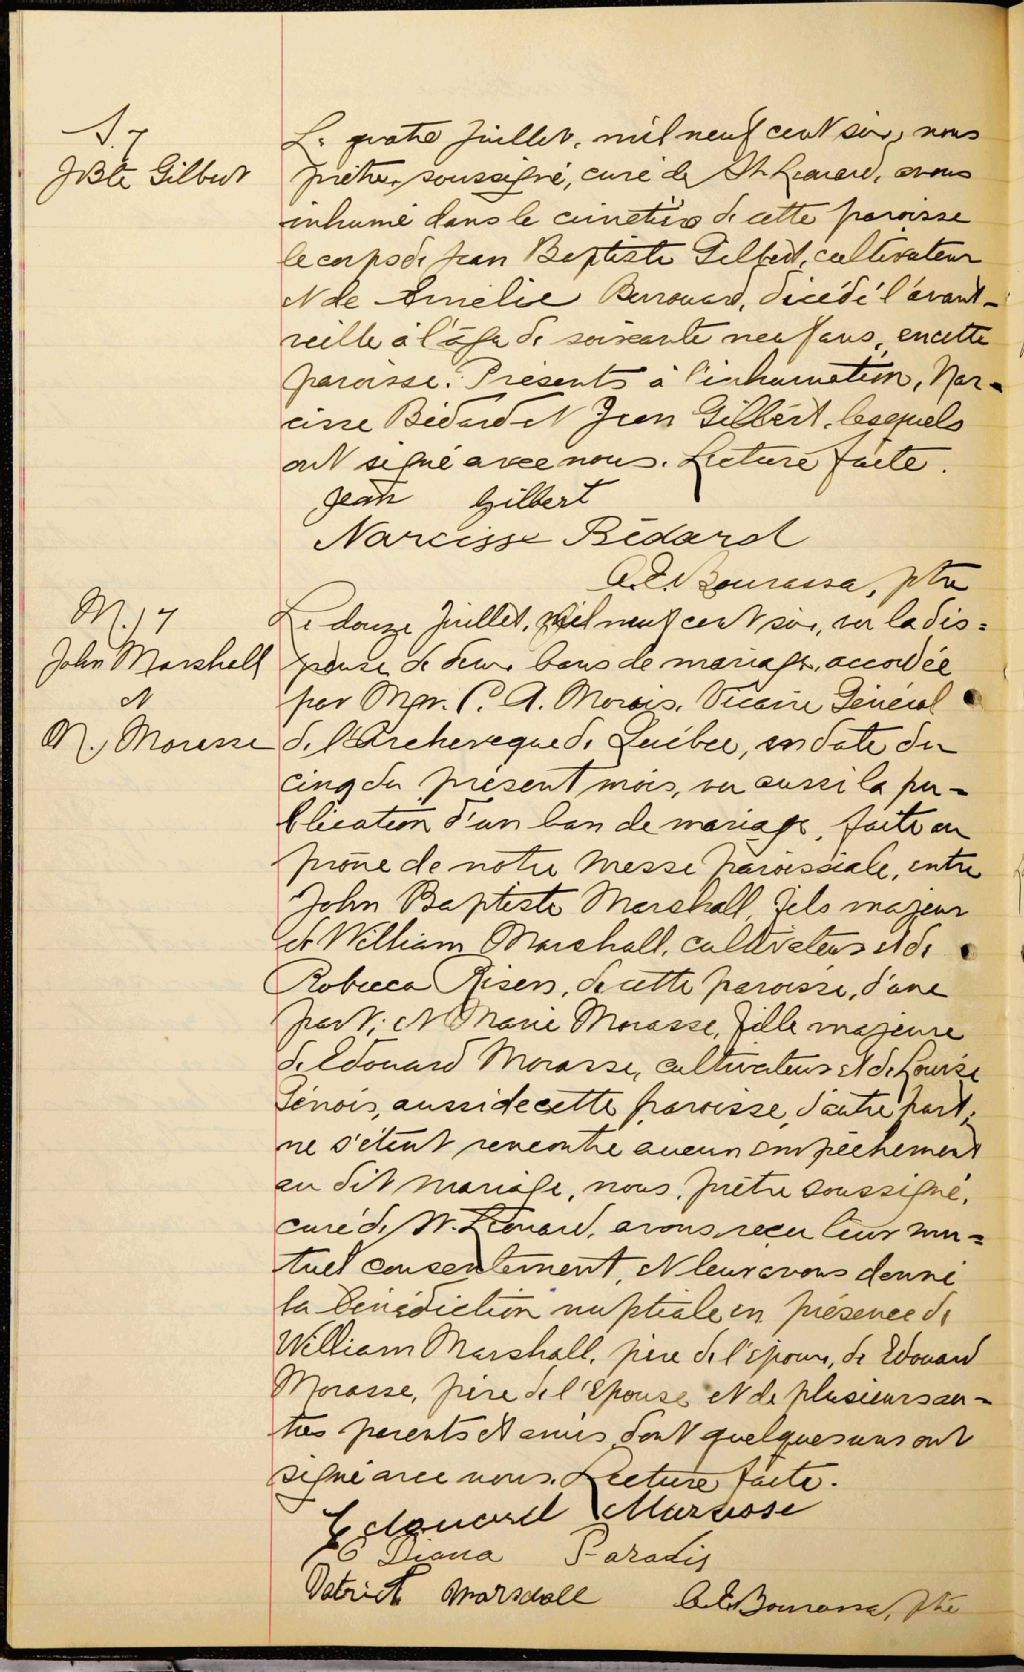 S. 7
JBte Gilbert
Le quatre Juillet, mil neuf cent six, nous
prêtre, soussigné, curé de St. Léonard, avons
inhumé dans le cimetière de cette paroisse
le corps de Jean Baptiste Gilbert, cultivateur
et de Amélie Berrouard, décédé l'avant-
veille à l'âge de soixante neuf ans, en cette
paroisse. Présents à l'inhumation, Nar-
cisse Bédard et Jean Gilbert, lesquels
ont signé avec nous. Lecture faite.
Jean Gilbert
Narcisse Bédard
A.E. Bourassa, ptre
M. 7
John Marshall
et
M. Morasse
Le douze Juillet, mil neuf cent six, vu la dis=
pense de deux bans de mariage, accordée
par Mgr. C. A. Marois, Vicaire Général
de l'Archeveque de Québec, en date du
cinq du présent mois, vu aussi la pu-
blication d'un ban de mariage, faite au
prône de notre messe paroissiale, entre
John Baptiste Marshall, fils majeur
de William Marshall, cultivateur et de
Robecca Risers, de cette paroisse, d'une
part; et Marie Morasse, fille majeure
de Edouard Morasse, cultivateur et de Louise
Génois, aussi de cette paroisse, d'autre part;
ne s'étent rencontré aucun empêchement
au dit mariage, nous, prêtre soussigné,
curé de St. Léonard, avons reçu leur mu=
tuel consentement, et leur avons donné
la bénédiction nuptiale en présence de
William Marshall, père de l'époux, de Edouard
Morasse, père de l'épouse, et de plusieurs au-
tres parents et amis dont quelques uns ont
signé avec nous. Lecture faite.
Edouard Marasse
E Diana Paradis
Patrick Marsdall A.E. Bourassa, ptre